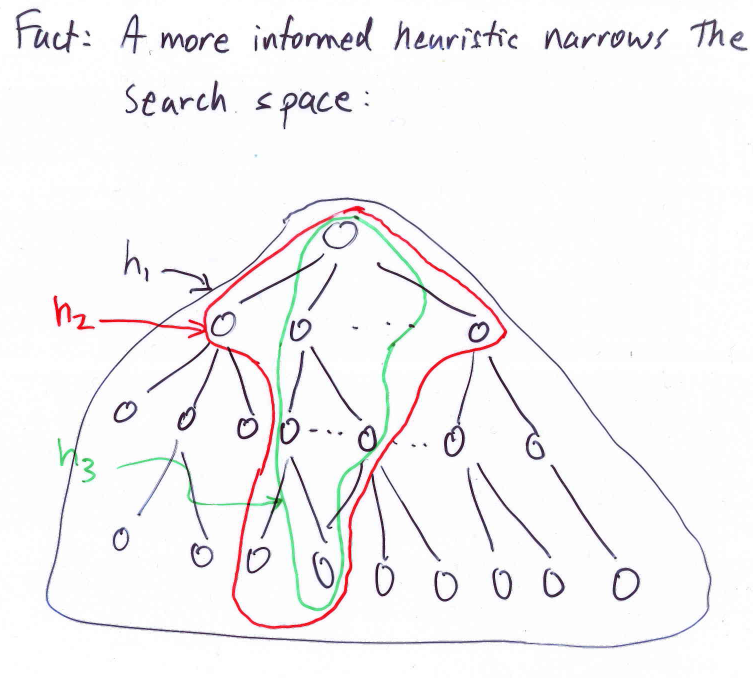 Fact: A more informed heuristic narrows the
search space:
h1
h2
h3